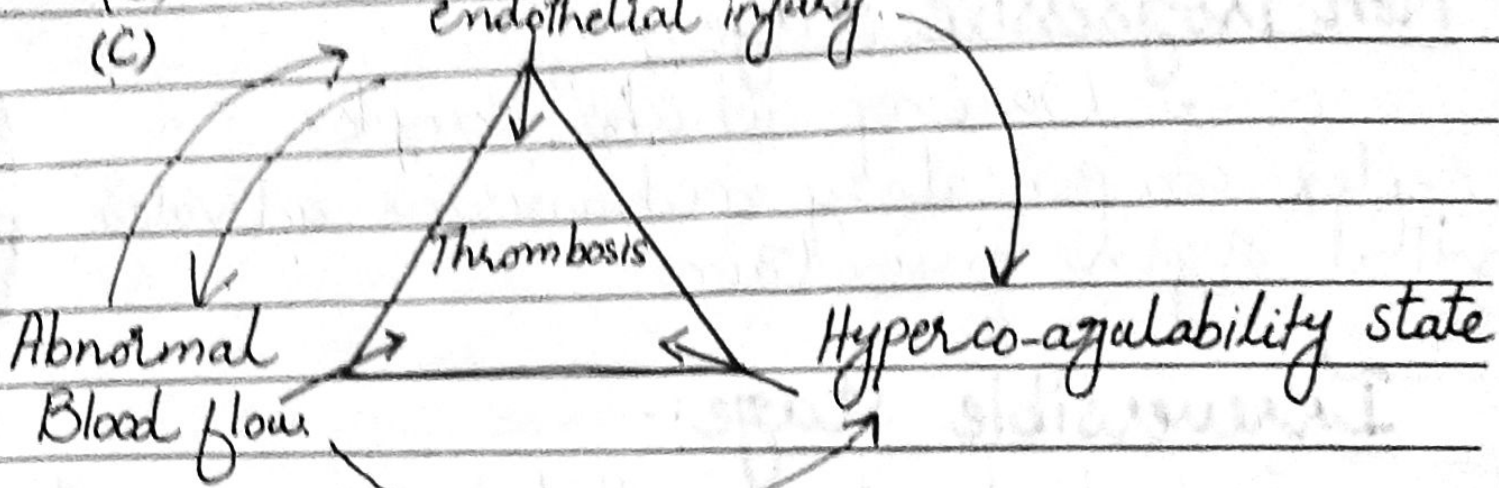 (C)
Endothelial injury
Thrombosis
Abnormal
Blood flow
Hyperco-agulability state